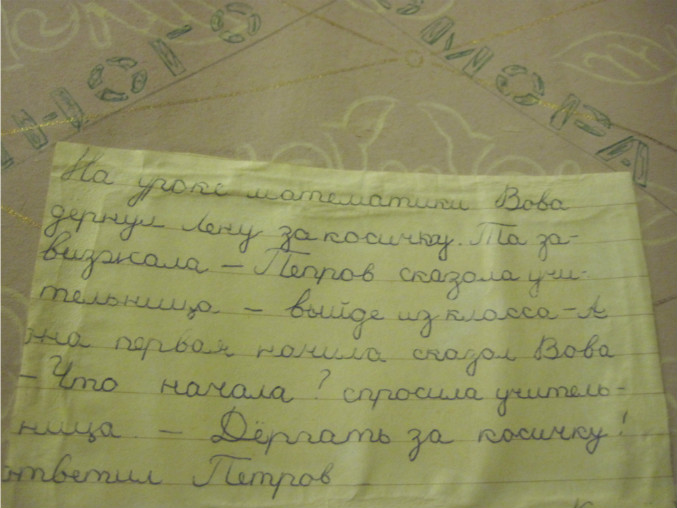 НОГО
ЮМОРА
На уроке математики Вова
дернул Лену за косичку. Та за-
визжала – Петров сказала учи-
тельница – выйде из класса – А
она первая начила сказал Вова
– Что начала? спросила учитель-
ница. – Дёргать за косичку!
ответил Петров